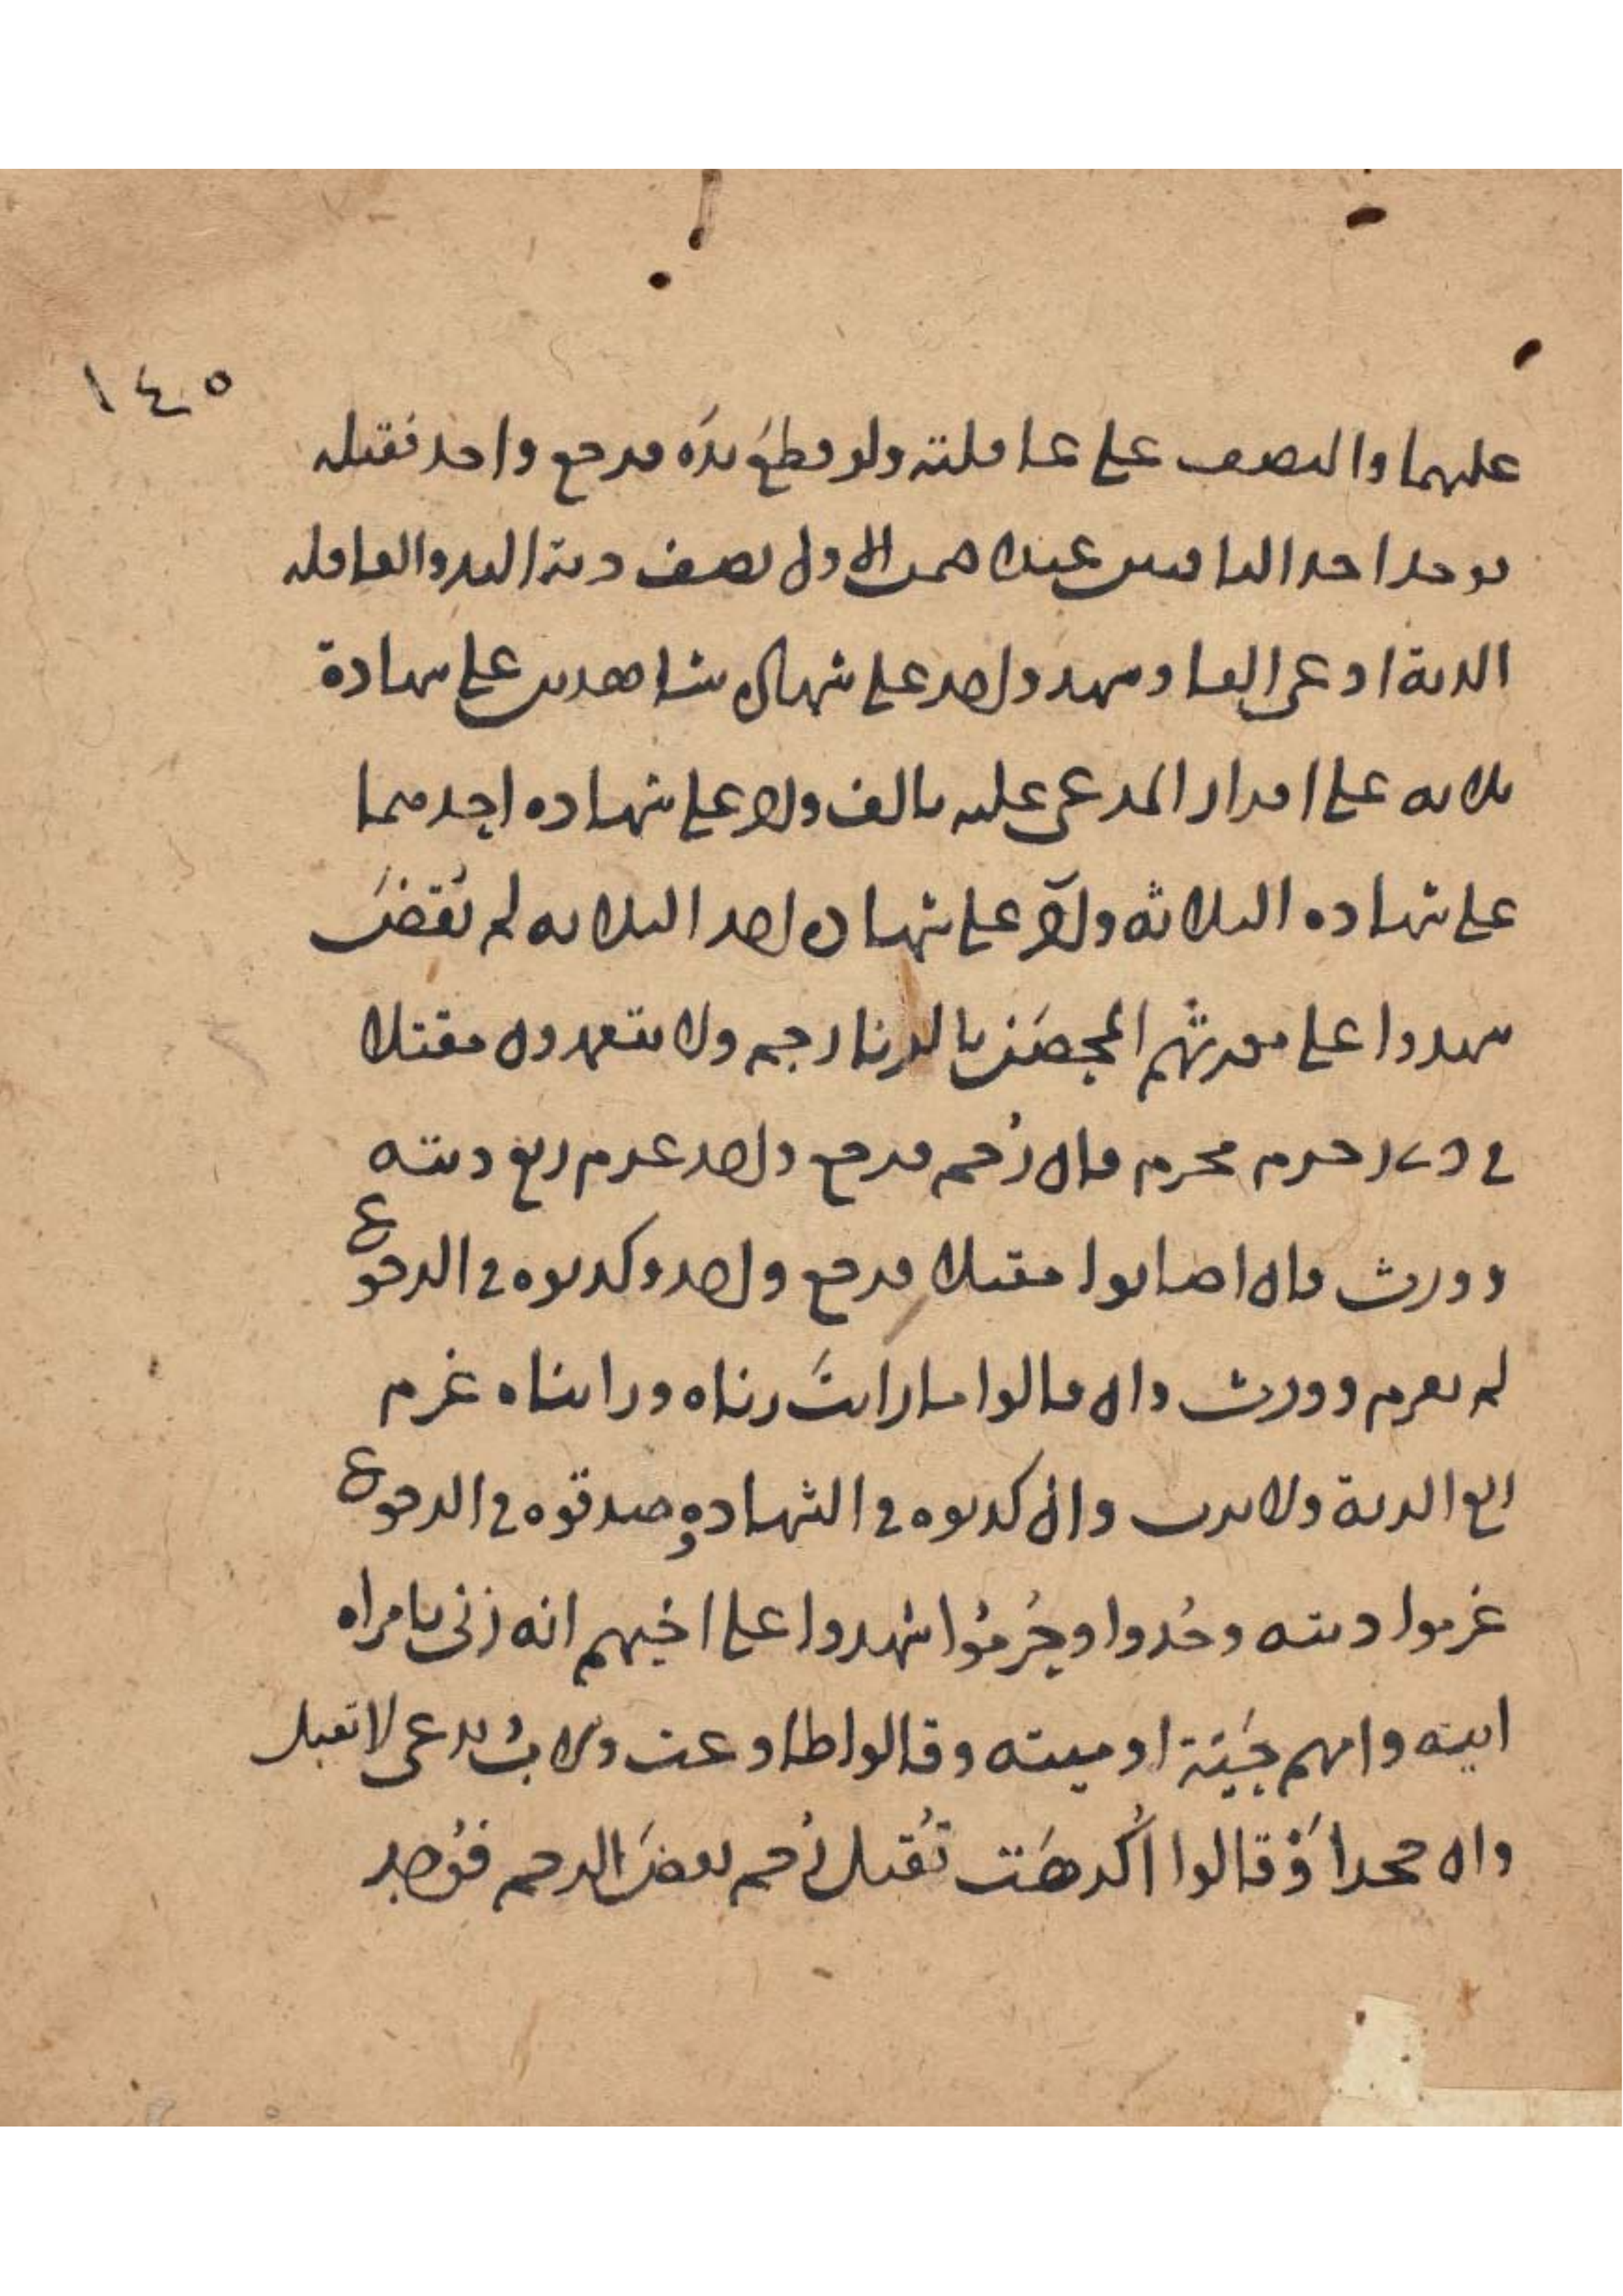 ١٤٥
عليهما والنصف على عاقلته ولو قطع يده فرجع واحد فقتله
فوجد احد الباقيين عبدا ضمن الاول نصف دية اليد والعاقله
الدية ادعى الفا وشهد واحد على شهادة شاهدين على شهادة
ثلاثه على اقرار المدعى عليه بالف واخر على شهاده احدهما
على شهاده الثلاثه واخر على شهاده احد الثلاثه لم تقض
شهدوا على مورثهم المحصن بالزنا رجم ولا يتعمدون مقتلا
في ذي رحم محرم فان رجم فرجع واحد غرم ربع ديته
وورث فان اصابوا مقتلا فرجع واحد وكذبوه في الرجوع
لم يغرم وورث وان قالوا ما رايت زناه ورايناه غرم
ربع الدية ولا يرث وان كذبوه في الشهاده وصدقوه في الرجوع
غرموا ديته وحدوا وحرموا شهدوا على اخيهم انه زنى بامراه
ابيه وامهم حية او ميته وقالوا طاوعت والاب يدعى لا تقبل
وان جحد او قالوا اكرهت تقبل رجم بعض الرجم فوجد